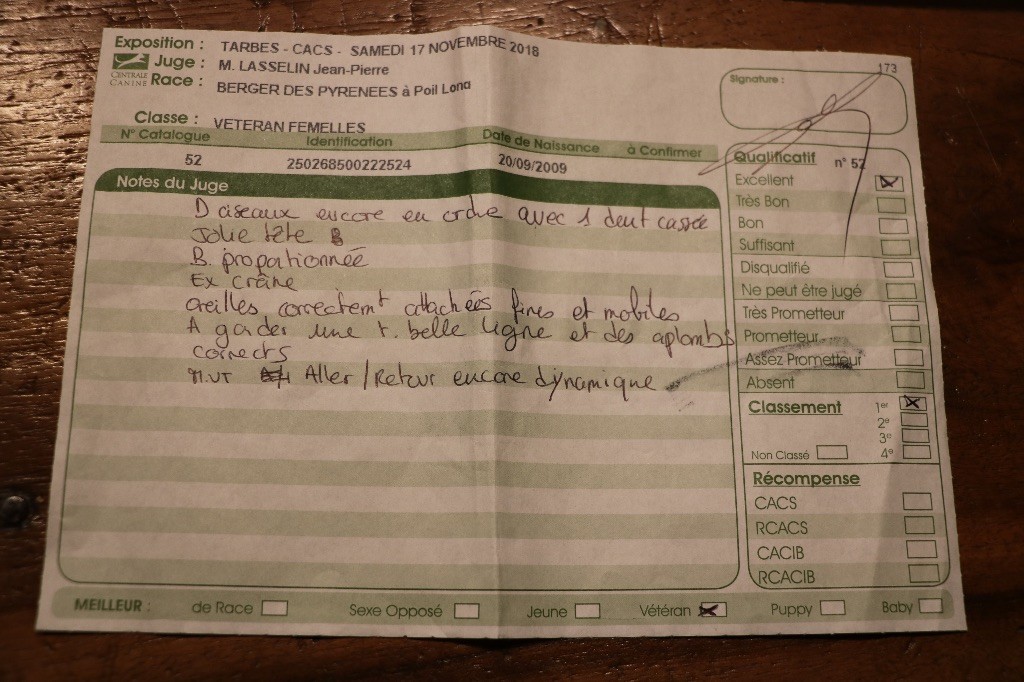 Exposition : TARBES - CACS - SAMEDI 17 NOVEMBRE 2018
Juge : M. LASSELIN Jean-Pierre
CENTRALE CANINE
Race : BERGER DES PYRENEES à Poil Long
Classe : VETERAN FEMELLES
173
Signature :
N° Catalogue Identification Date de Naissance à Confirmer
52 250268500222524 20/09/2009
Notes du Juge
D ciseaux encore en ordre avec 1 dent cassée
Jolie tête
B. proportionnée
Ex crâne
oreilles correctemt attachées fines et mobiles
A garder une t. belle ligne et des aplombs
corrects
Aller / Retour encore dynamique
Qualificatif n° 52
Excellent
Très Bon
Bon
Suffisant
Disqualifié
Ne peut être jugé
Très Prometteur
Prometteur
Assez Prometteur
Absent
Classement 1er
2e
3e
Non Classé 4e
Récompense
CACS
RCACS
CACIB
RCACIB
MEILLEUR : de Race Sexe Opposé Jeune Vétéran Puppy Baby